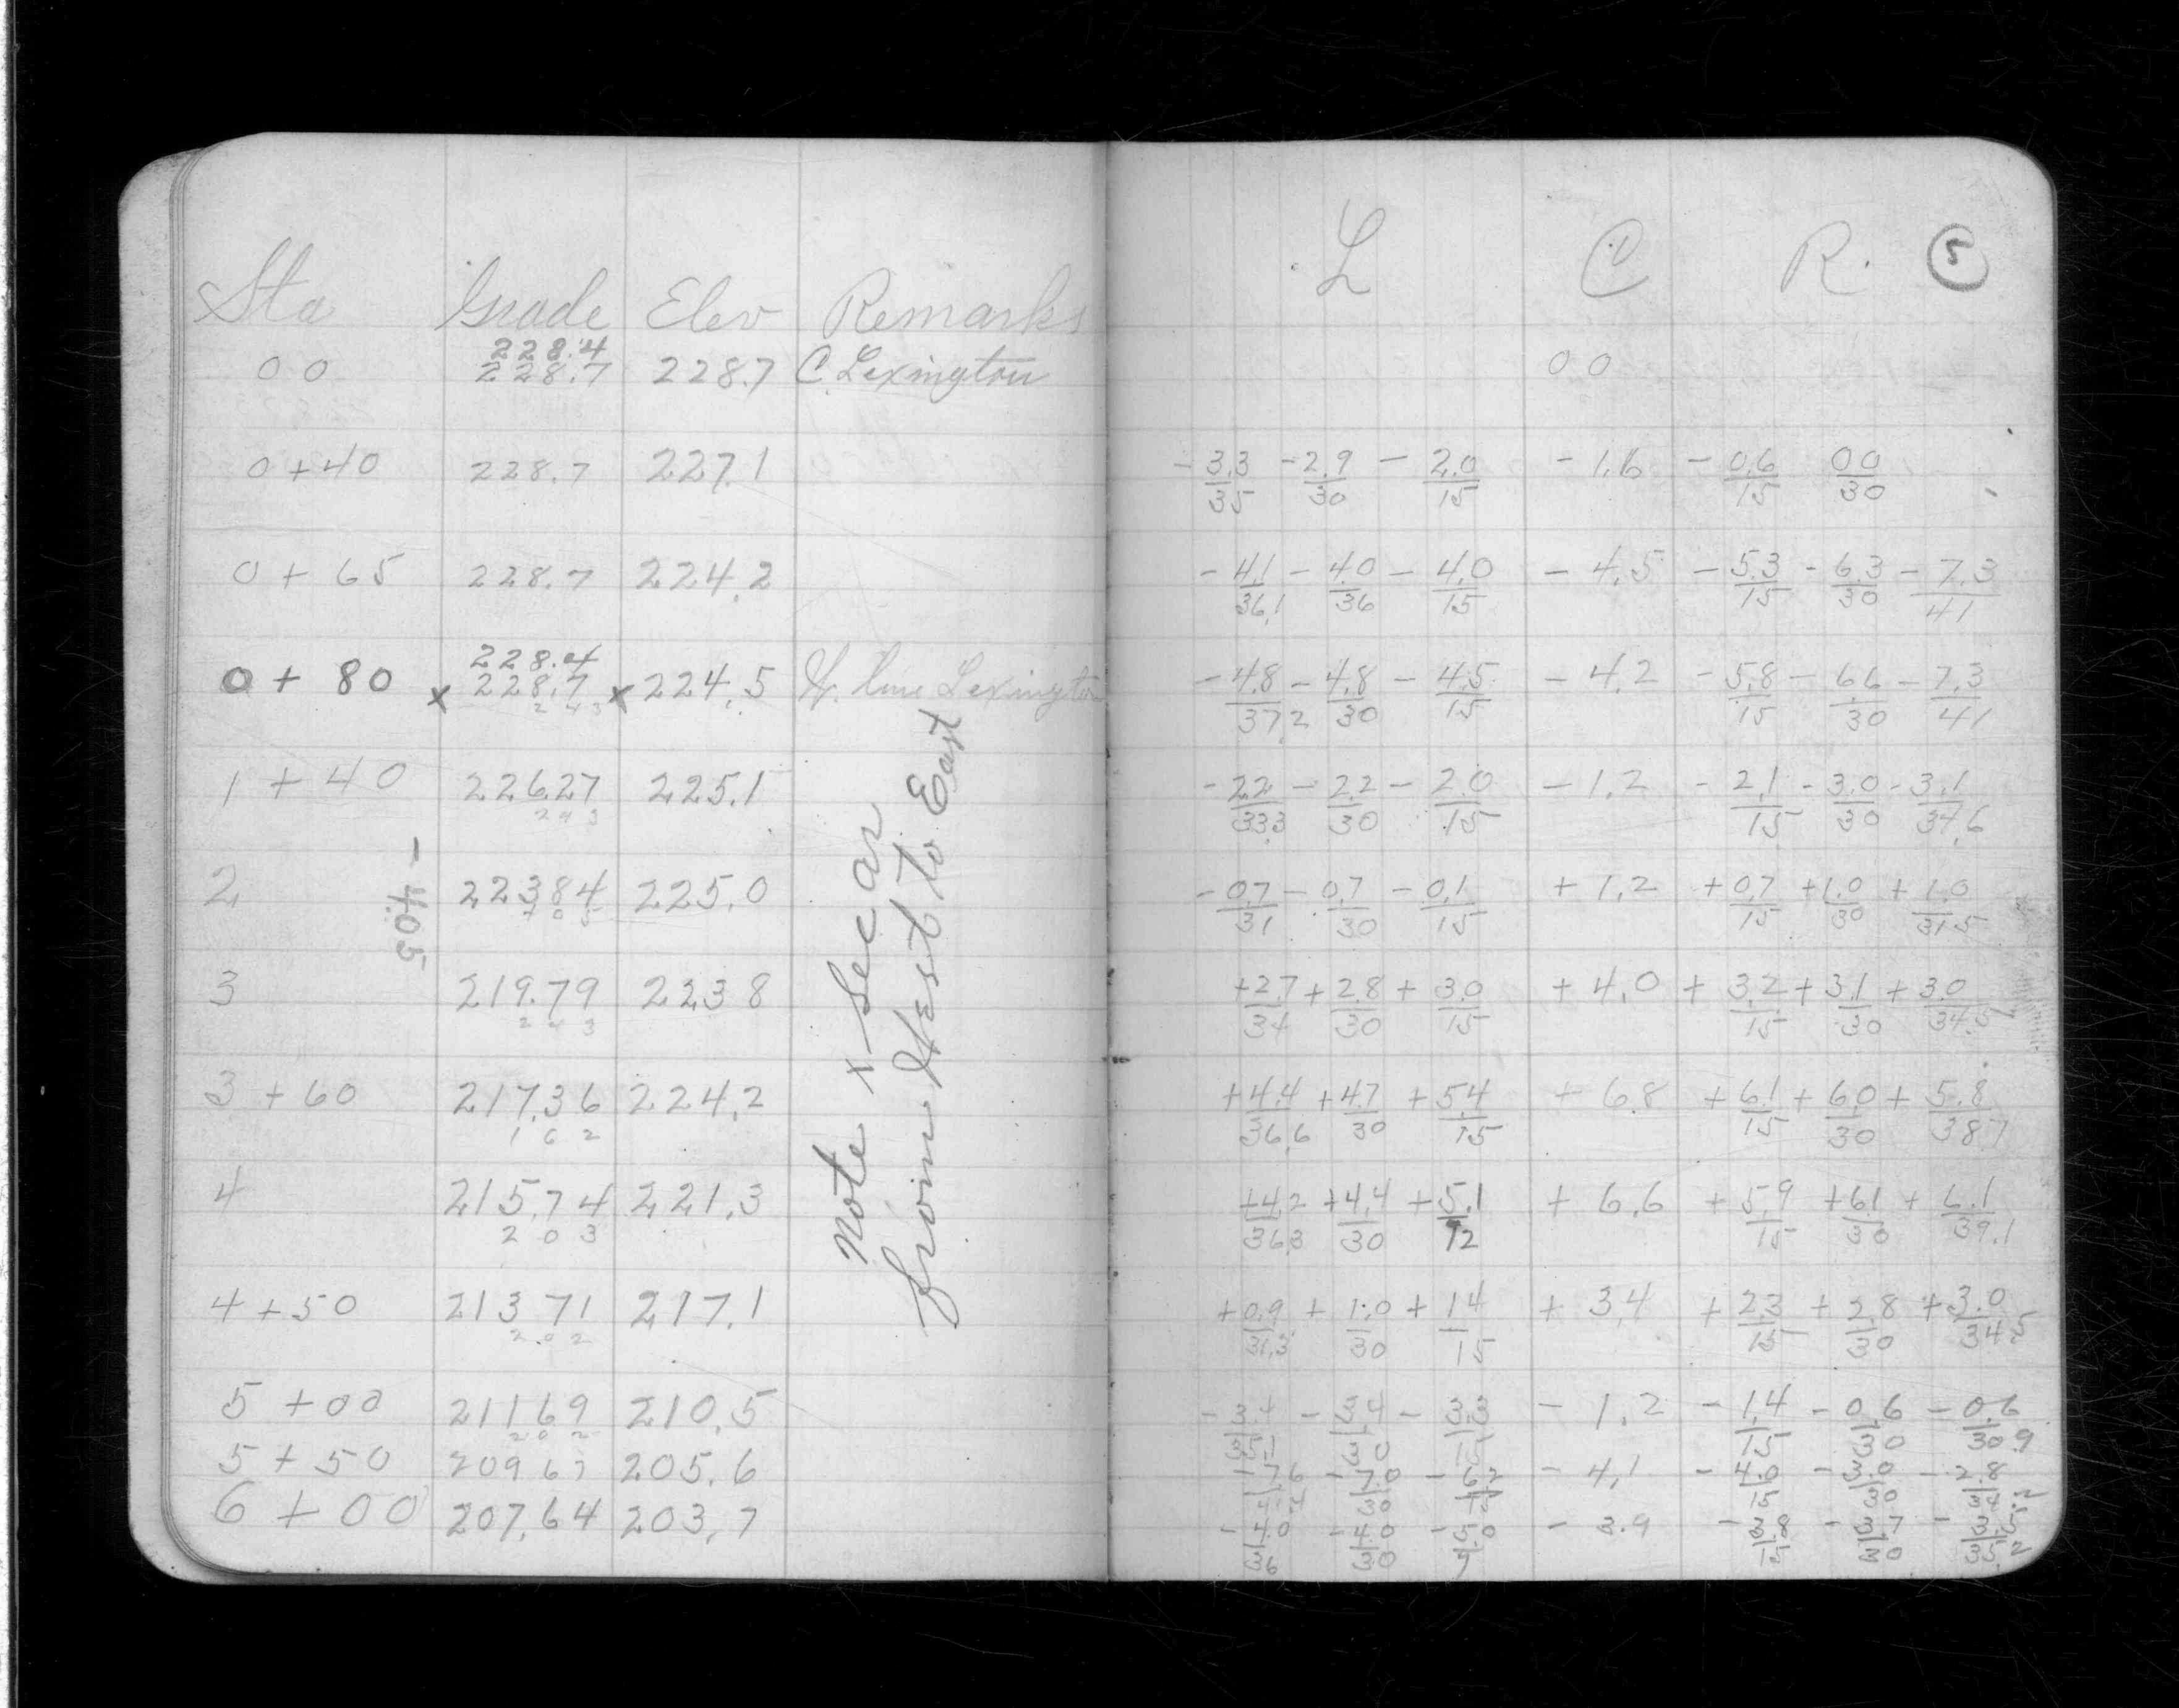 Sta Grade Elev Remarks
228.4
00 228.7 228.7 C. Lexington
0+40 228.7 227.1
0 + 65 228.7 224.2
228.4
0 + 80 x 228.7 x 224.5 line Lexington
243
1 + 40 226.27 225.1
243
2 223.84 225.0
405
3 219.79 223.8
243
3 + 60 217.36 224.2
162
4 215.74 221.3
203
4 + 50 213.71 217.1
202
5 + 00 211.69 210.5
202
5 + 50 209.67 205.6
6 + 00 207.64 203.7
- 4.05
Note x-Sec are
from West to East
L C R. 5
00
- 3.3 - 2.9 - 2.0 - 1.6 - 0.6 00
35 30 15 15 30
- 4.1 - 4.0 - 4.0 - 4.5 - 5.3 - 6.3 - 7.3
36.1 36 15 15 30 41
- 4.8 - 4.8 - 4.5 - 4.2 - 5.8 - 6.6 - 7.3
37.2 30 15 15 30 41
- 2.2 - 2.2 - 2.0 - 1.2 - 2.1 - 3.0 - 3.1
33.3 30 15 15 30 34.6
- 0.7 - 0.7 - 0.1 + 1.2 + 0.7 + 1.0 + 1.0
31 30 15 15 30 31.5
+ 2.7 + 2.8 + 3.0 + 4.0 + 3.2 + 3.1 + 3.0
34 30 15 15 30 34.5
+ 4.4 + 4.7 + 5.4 + 6.8 + 6.1 + 6.0 + 5.8
36.6 30 15 15 30 38.7
+ 4.2 + 4.4 + 5.1 + 6.6 + 5.9 + 6.1 + 6.1
36.3 30 12 15 30 39.1
+ 0.9 + 1.0 + 1.4 + 3.4 + 2.3 + 2.8 + 3.0
31.3 30 15 15 30 34.5
- 3.4 - 3.4 - 3.3 - 1.2 - 1.4 - 0.6 - 0.6
35.1 30 15 15 30 30.9
- 7.6 - 7.0 - 6.2 - 4.1 - 4.0 - 3.0 - 2.8
30 15 30 34.2
- 4.0 - 4.0 - 5.0 - 3.9 - 3.8 - 3.7 - 3.5
36 30 15 30 35.2